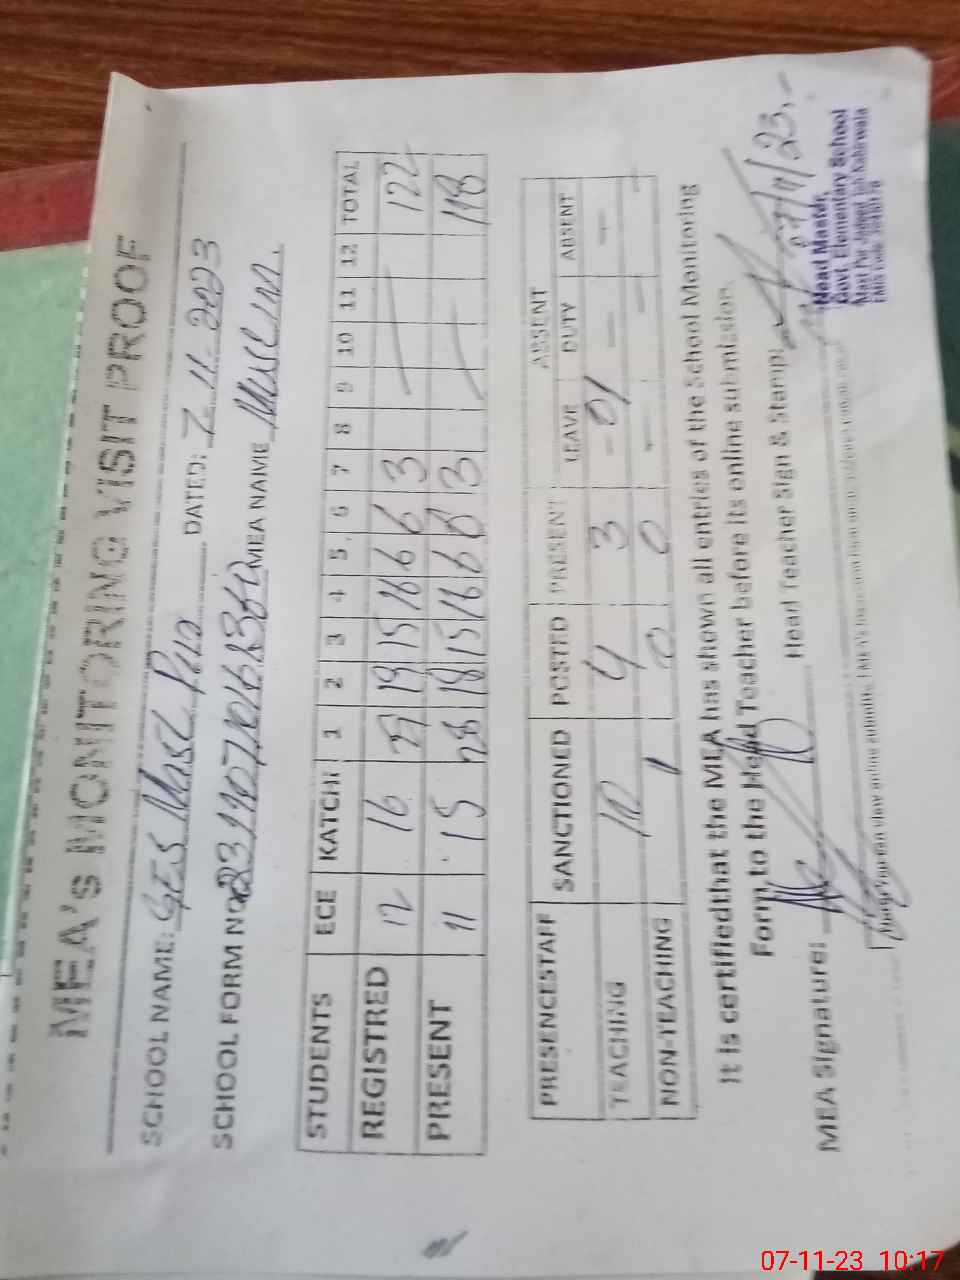 MEA's MONITORING VISIT PROOF
SCHOOL NAME: GES Mast Pur DATED: 7.11.2023
SCHOOL FORM NO MEA NAME Muslim.
STUDENTS ECE KATCHI 1 2 3 4 5 6 7 8 9 10 11 12 TOTAL
REGISTRED 12 16 29 19 15 16 6 6 3 122
PRESENT 11 15 28 18 15 16 6 3 118
ABSENT
PRESENCESTAFF SANCTIONED POSTED PRESENT LEAVE DUTY ABSENT
TEACHING 10 4 3 - 01 - -
NON-TEACHING 1 0 0 - - -
It is certifiedthat the MEA has shown all entries of the School Monitoring
Form to the Head Teacher before its online submission.
MEA Signature: Head Teacher Sign & Stamp:
07/11/23.
Head Master,
Govt. Elementary School
Mast Pur
07-11-23 10:17